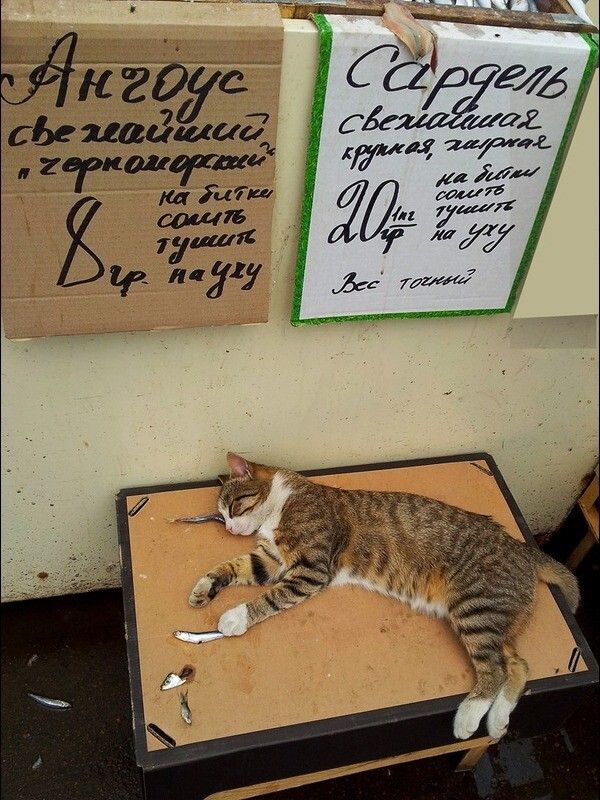 Анчоус
свежайший
"черноморский"
8 гр.
на битки
солить
тушить
на уху
Сардель
свежайшая
крупная, жирная
20 1кг
гр
на битки
солить
тушить
на уху
Вес точный